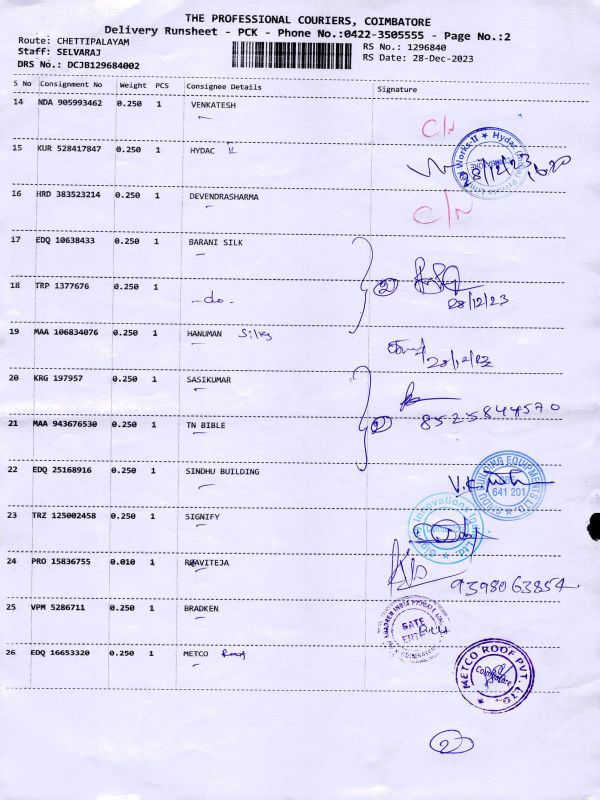 THE PROFESSIONAL COURIERS, COIMBATORE
Delivery Runsheet - PCK - Phone No.:0422-3505555 - Page No.:2
Route: CHETTIPALAYAM RS No.: 1296840
Staff: SELVARAJ RS Date: 28-Dec-2023
DRS No.: DCJB129684002
S No Consignment No Weight PCS Consignee Details Signature
14 NDA 905993462 0.250 1 VENKATESH
C/N
15 KUR 528417847 0.250 1 HYDAC II
16 HRD 383523214 0.250 1 DEVENDRASHARMA
C/N
17 EDQ 10638433 0.250 1 BARANI SILK
18 TRP 1377676 0.250 1 -do- 2
28/12/23
19 MAA 106834076 0.250 1 HANUMAN Silks
28/12/23
20 KRG 197957 0.250 1 SASIKUMAR
8525844570
21 MAA 943676530 0.250 1 TN BIBLE
22 EDQ 25168916 0.250 1 SINDHU BUILDING
BUILDING EQUIPMENTS
641 201
23 TRZ 125002458 0.250 1 SIGNIFY
24 PRO 15836755 0.010 1 RAAVITEJA
9398063854
25 VPM 5286711 0.250 1 BRADKEN
GATE
26 EDQ 16653320 0.250 1 METCO Roof
METCO ROOF PVT. LTD
Coimbatore
2